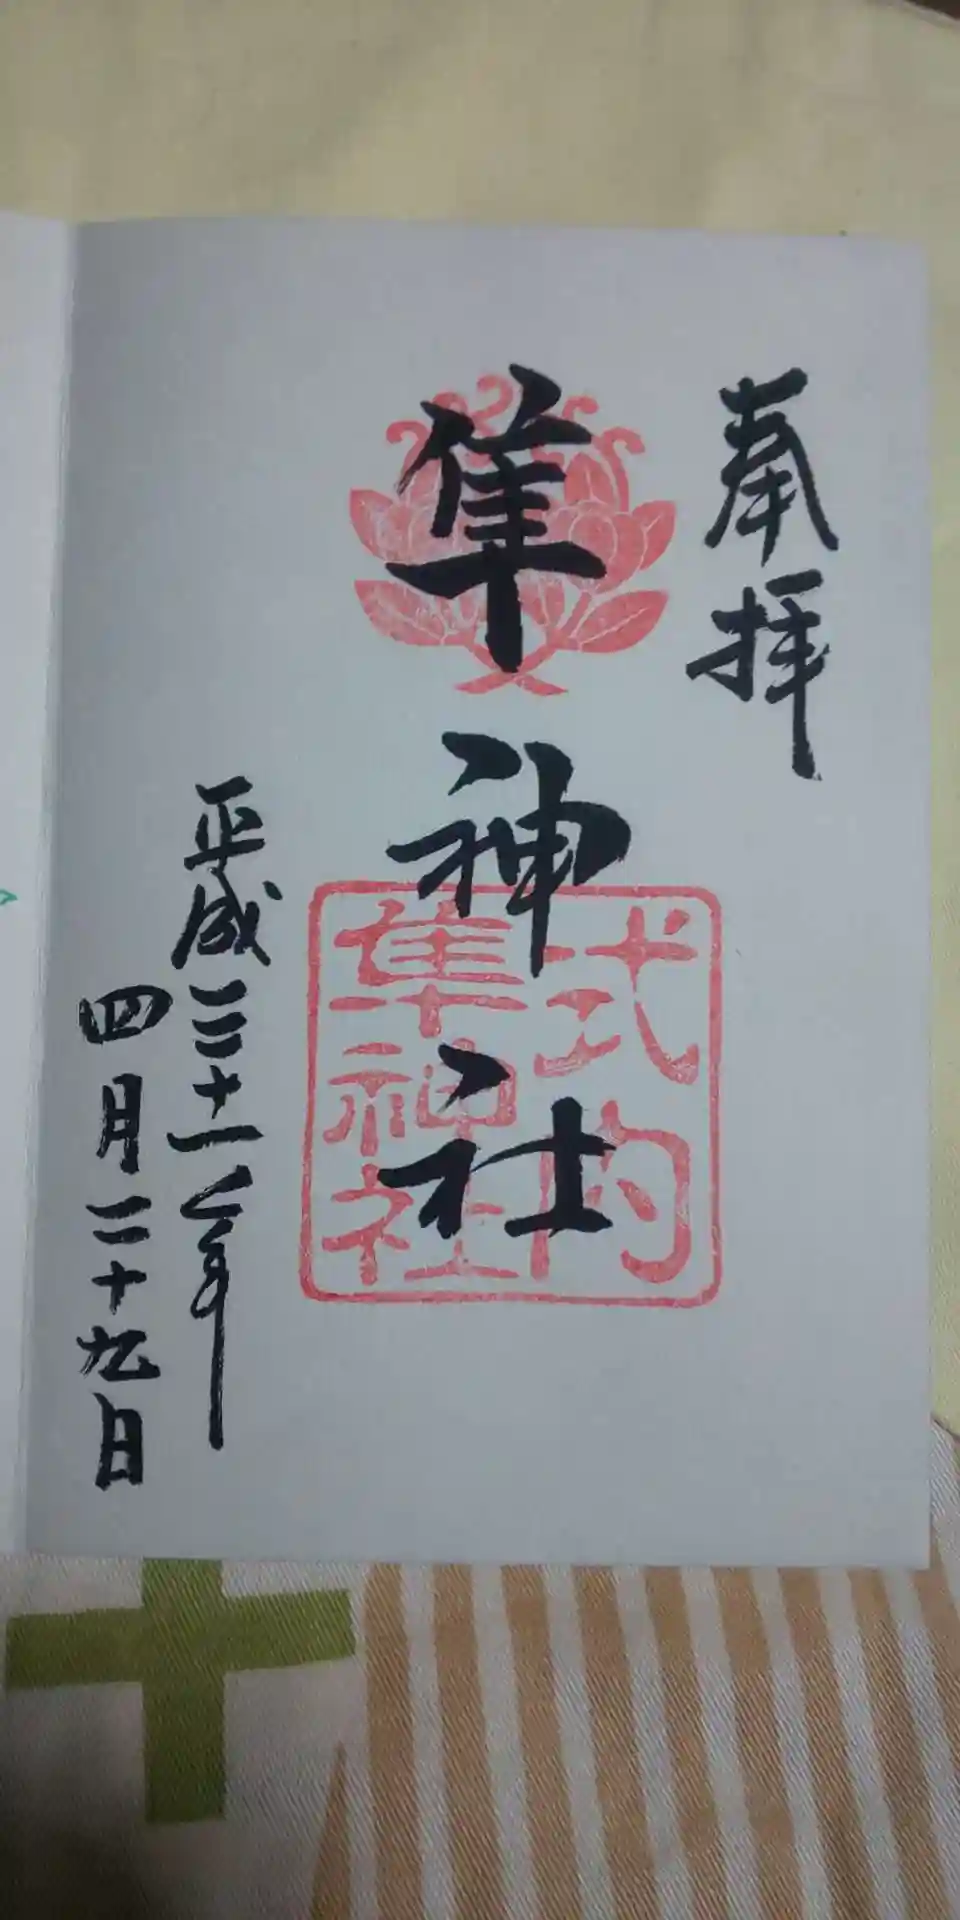 奉拝
隼神社
式内
隼神社
平成三十一年
四月二十九日